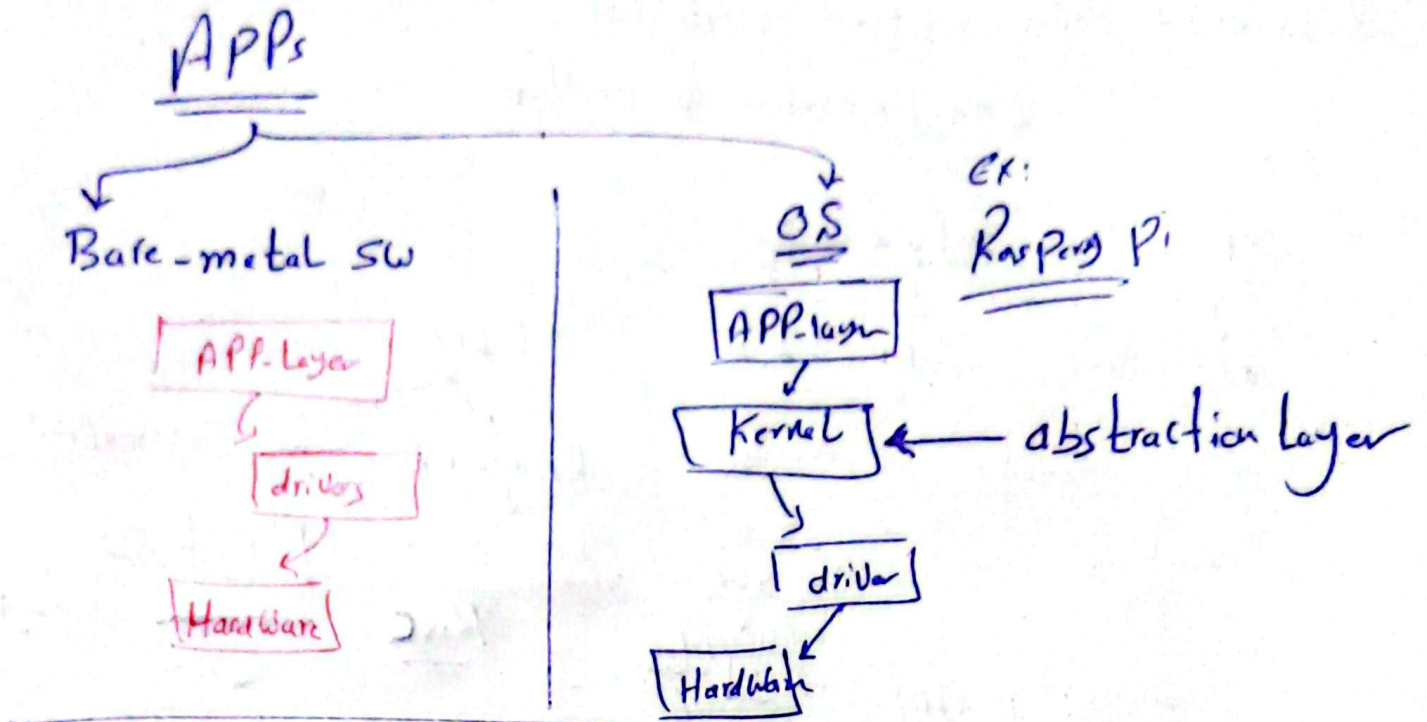 APPs
Bare-metal SW
APP-Layer
drivers
HardWare
OS
ex:
Rasperg Pi
APP-layer
Kernel
abstraction Layer
driver
Hardware